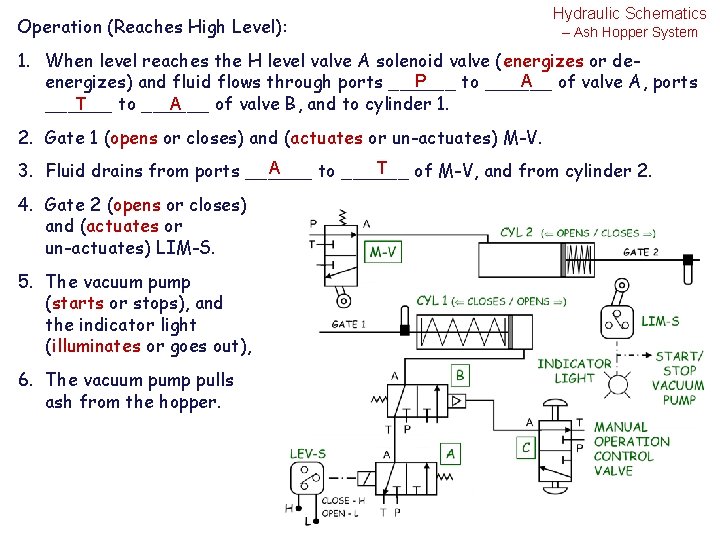 Hydraulic Schematics
– Ash Hopper System
Operation (Reaches High Level):
1. When level reaches the H level valve A solenoid valve (energizes or de-
energizes) and fluid flows through ports ___P___ to ___A___ of valve A, ports
___T___ to ___A___ of valve B, and to cylinder 1.
2. Gate 1 (opens or closes) and (actuates or un-actuates) M-V.
3. Fluid drains from ports ___A___ to ___T___ of M-V, and from cylinder 2.
4. Gate 2 (opens or closes)
and (actuates or
un-actuates) LIM-S.
5. The vacuum pump
(starts or stops), and
the indicator light
(illuminates or goes out),
6. The vacuum pump pulls
ash from the hopper.
P
T
A
M-V
CYL 2 (⇐ OPENS / CLOSES ⇒)
GATE 2
CYL 1 (⇐ CLOSES / OPENS ⇒)
GATE 1
LIM-S
INDICATOR
LIGHT
START/
STOP
VACUUM
PUMP
A
B
T P
A
T
P
C
MANUAL
OPERATION
CONTROL
VALVE
LEV-S
A
A
CLOSE - H
OPEN - L
H
L
T P